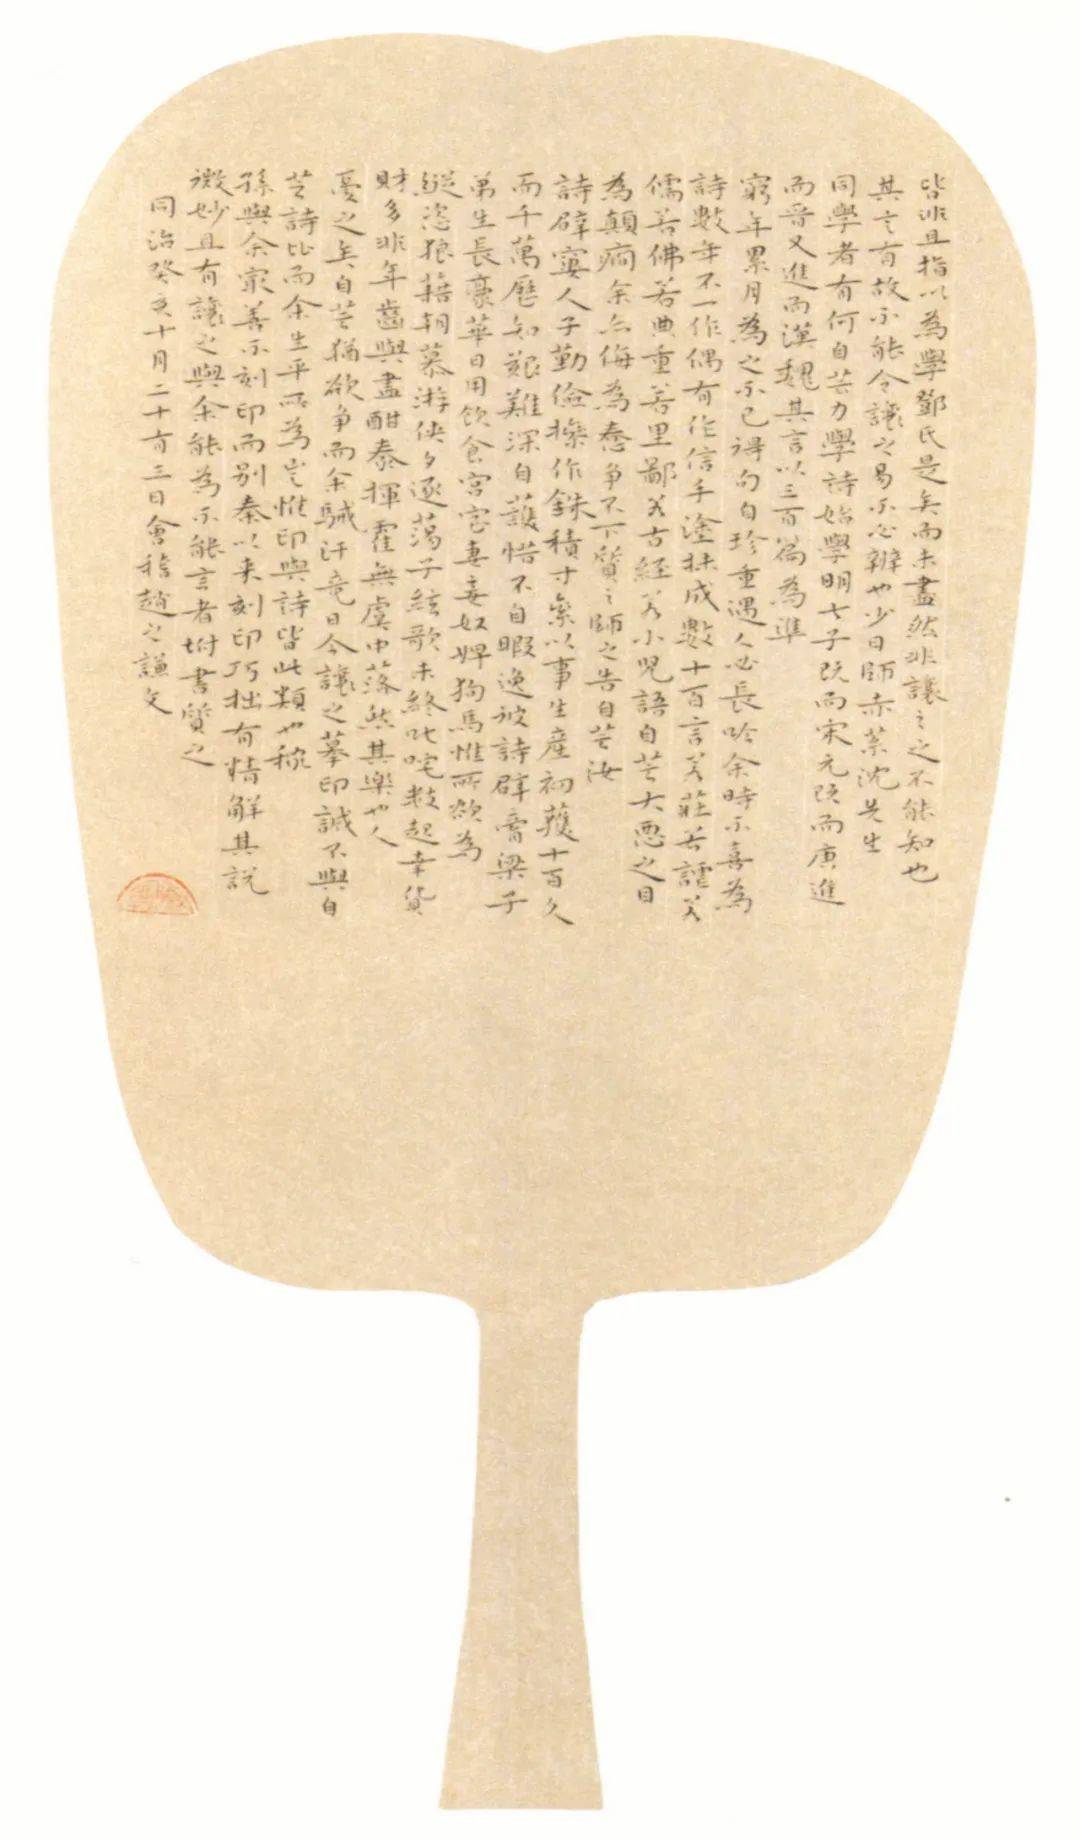 皆非且指以為學鄧氏是矣而未盡然非讓之之不能知也
其言有故不能令讓之易不必辨也少日師赤菜沈先生
同學者有何自芒力學詩始學明七子既而宋元既而唐進
而晉又進而漢魏其言以三百篇為準
窮年累月為之不已得句自珍重遇人必長吟余時不喜為
詩數年不一作偶有作信手塗抹成數十百言若莊若謔若
儒若佛若典重若里鄙若古經若小兒語自芒大惡之目
為顛癇余亦侮為惷爭不下質之師之告自芒汝
詩辟窶人子勤儉操作銖積寸絫以事生產初穫十百久
而千萬歷知艱難深自護惜不自暇逸彼詩辟膏粱子
弟生長豪華日用飲食宮室妻妾奴婢狗馬惟所欲為
縱恣狼藉朝慕游俠夕逐蕩子絃歌未終叱咤敖起幸貲
財多非年齒與盡酣泰揮霍無虞中落然其樂也人
憂之矣自芒猶欲爭而余駴汗竟日今讓之摹印誠不與自
芒詩比而余生平所為豈惟印與詩皆此類也稼
孫與余最善不刻印而別秦以來刻印巧拙有精解其說
微妙且有讓之與余能為不能言者坿書質之
同治癸亥十月二十有三日會稽趙之謙文